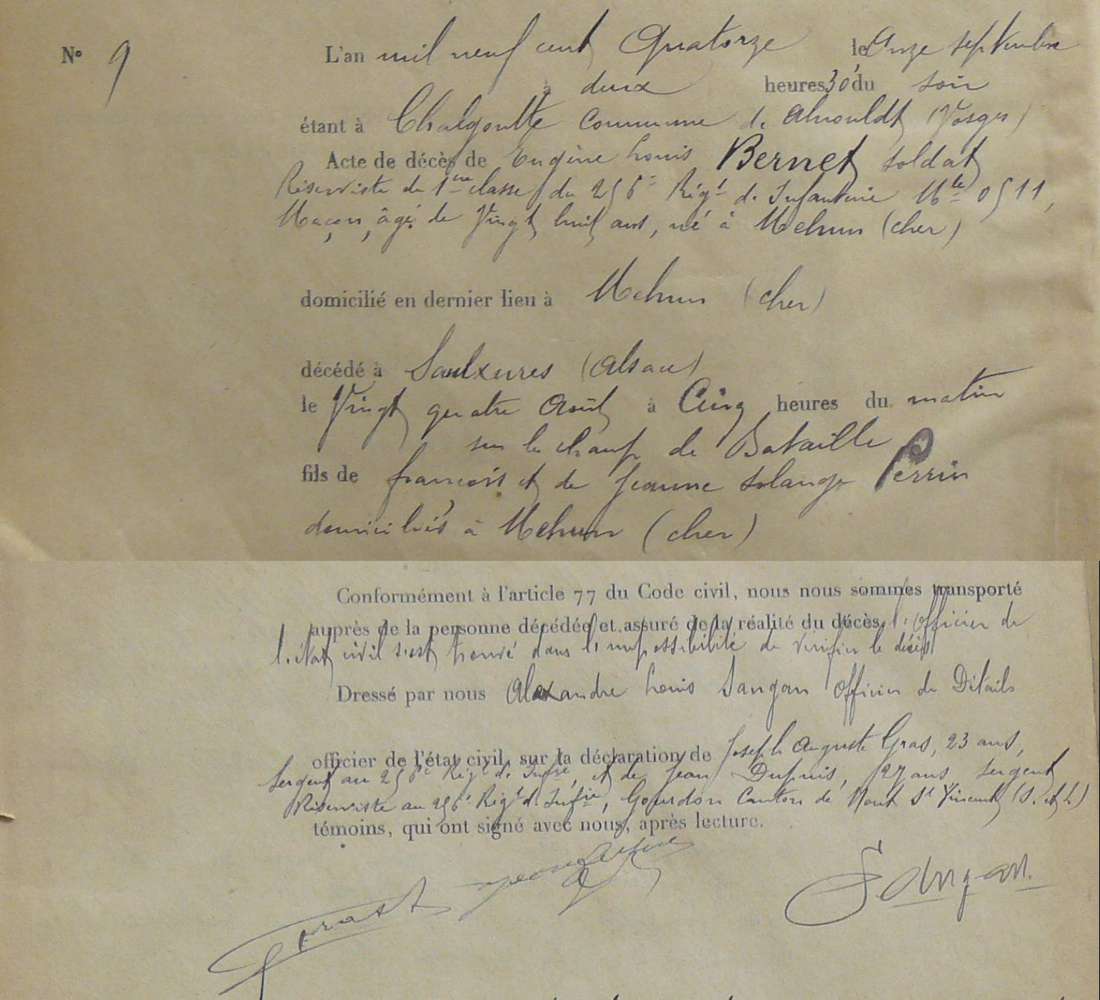 N° 9
L'an mil neuf cent Quatorze le Onze septembre
à deux heures 30 du soir
étant à Chalgoutte Commune de Anouldt (Vosges)
Acte de décès de Eugène Louis Bernet soldat
Réserviste de 1ere classe du 256e Régt de Infanterie Mle 0511,
Maçon, âgé de Vingt huit ans, né à Mehun (cher)
domicilié en dernier lieu à Mehun (cher)
décédé à Saulxures (Alsace)
le Vingt quatre Août à Cinq heures du matin
sur le champ de Bataille
fils de françois et de Jeanne Solange Perrin
domiciliés à Mehun (cher)
Conformément à l'article 77 du Code civil, nous nous sommes transporté
auprès de la personne décédée et assuré de la réalité du décès, l'officier de
l'état civil s'est trouvé dans l'impossibilité de vérifier le décès
Dressé par nous Alexandre Louis Sangan officier de Détails
officier de l'état civil, sur la déclaration de Joseph Auguste Gras, 23 ans,
Sergent au 256e Régt de Infrie, et de Jean Dupuis, 27 ans Sergent
Réserviste au 256e Régt d'Infrie, Gourdon Canton de Mont St Vincent (S. et L)
témoins, qui ont signé avec nous, après lecture.
Sangan